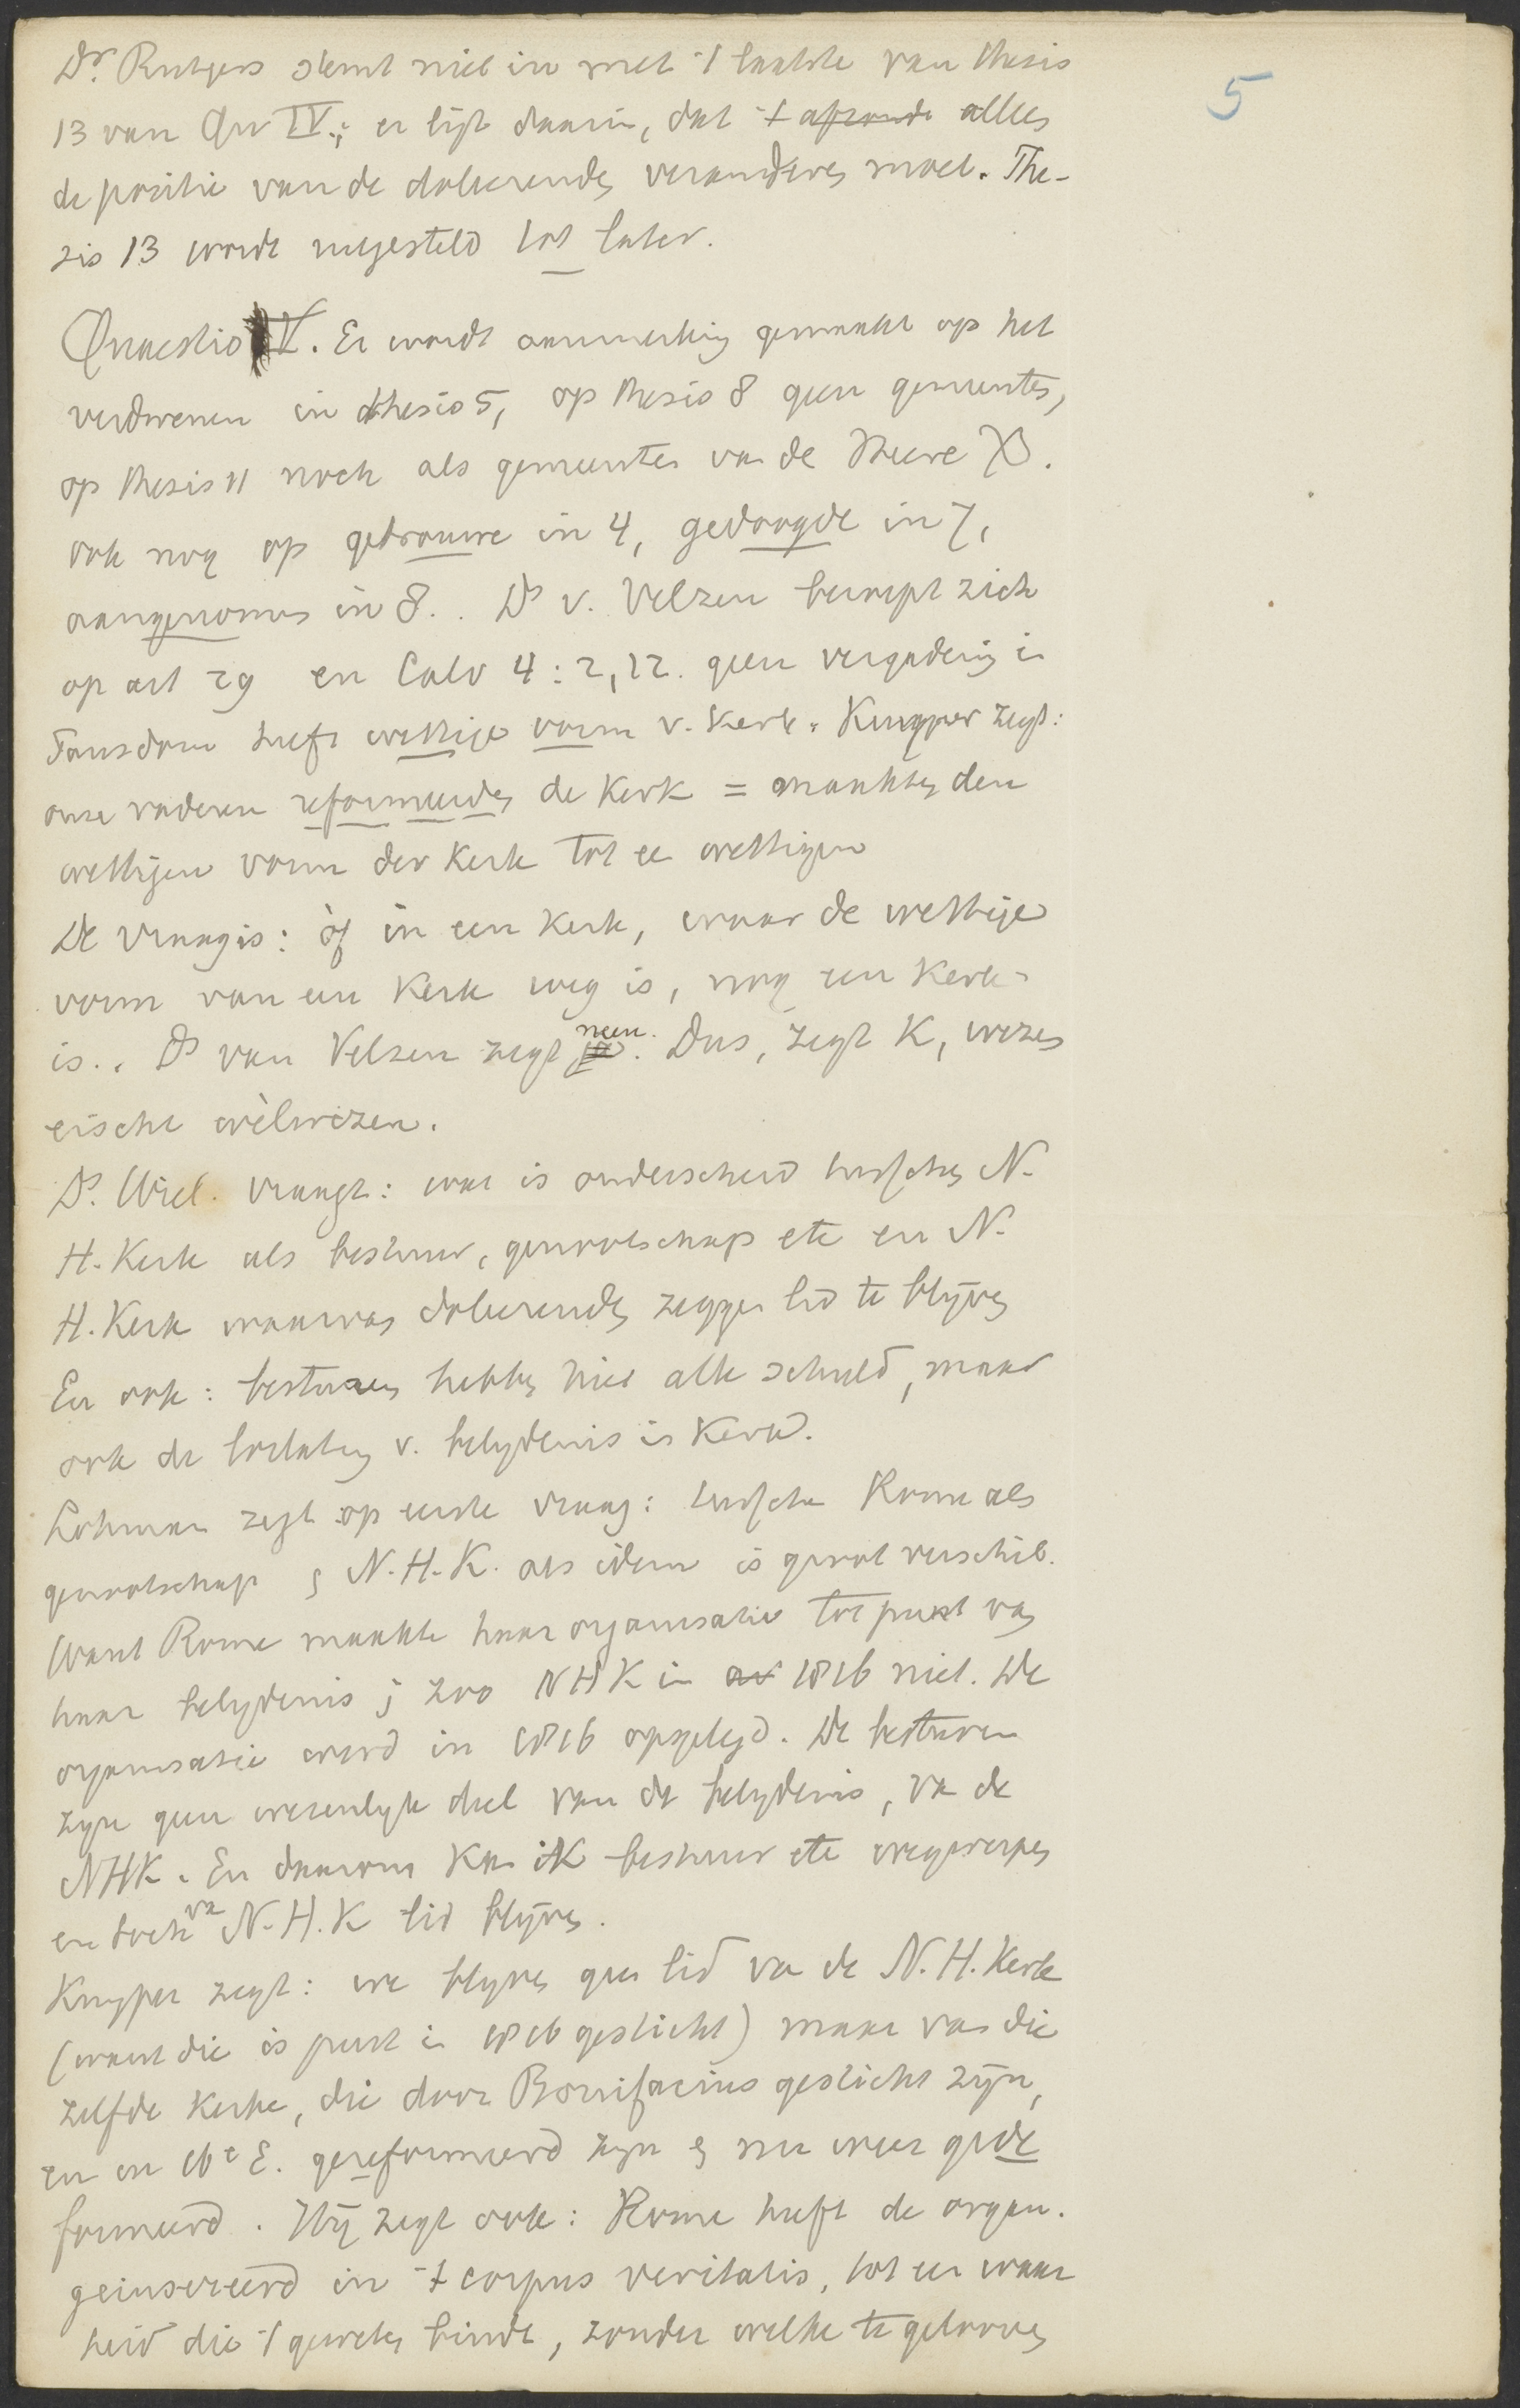 Dr. Rutgers stemt niet in met 't laatste van thesis
5
13 van Qu IV.; er ligt daarin, dat 't alles
de positie van de doleerenden veranderen moet. The-
sis 13 wordt uitgesteld tot later.
Quaestio V. Er wordt aanmerking gemaakt op het
verdwenen in thesis 5, op thesis 8 geen gemeentes,
op thesis 11 noch als gemeenten van de Heere
ook nog op getrouwe in 4, gedoogde in 7,
aangenomen in 8. Ds v. Velzen beroept zich
op art 29 en Calv 4:2,12. geen vergadering in
Pausdom heeft wettige vorm v. kerk. Kuyper zegt:
onze vaderen reformeerden de Kerk = maakten den
wettigen vorm der Kerk tot een wettigen
De vraag is: òf in een Kerk, waar de wettige
vorm van een Kerk weg is, nog een Kerk
is.. Ds van Velzen zegt neen. Dus, zegt K, wezen
eischt wèlwezen.
Ds. Wiel. vraagt: wat is onderscheid tusschen N.
H. Kerk als bestuur, genootschap etc en N.
H. Kerk waarvan doleerenden zeggen lid te blijven
En ook: besturen hebben niet alle schuld, maar
ook de loslating v. belijdenis in Kerk.
Lohman zegt op eerste vraag: tusschen Rome als
genootschap & N.H.K. als idem is groot verschil.
Want Rome maakte haar organisatie tot punt van
haar belijdenis; zoo NHK in 1816 niet. De
organisatie werd in 1816 opgelegd. De besturen
zijn geen wezenlijk deel van de belijdenis, van de
NHK. En daarom kan ik bestuur etc wegwerpen
en toch van N.H.K lid blijven.
Kuyper zegt: we blijven geen lid van de N.H. Kerk
(want die is juist in 1816 gesticht) maar van die
zelfde kerken, die door Bonifacius gesticht zijn,
en in 16e E. gereformeerd zijn & nu weer gede
formeerd. Hij zegt ook: Rome heeft de organ.
geinsereerd in 't corpus veritatis, tot een waar
heid die 't geweten bindt, zonder welke te gelooven